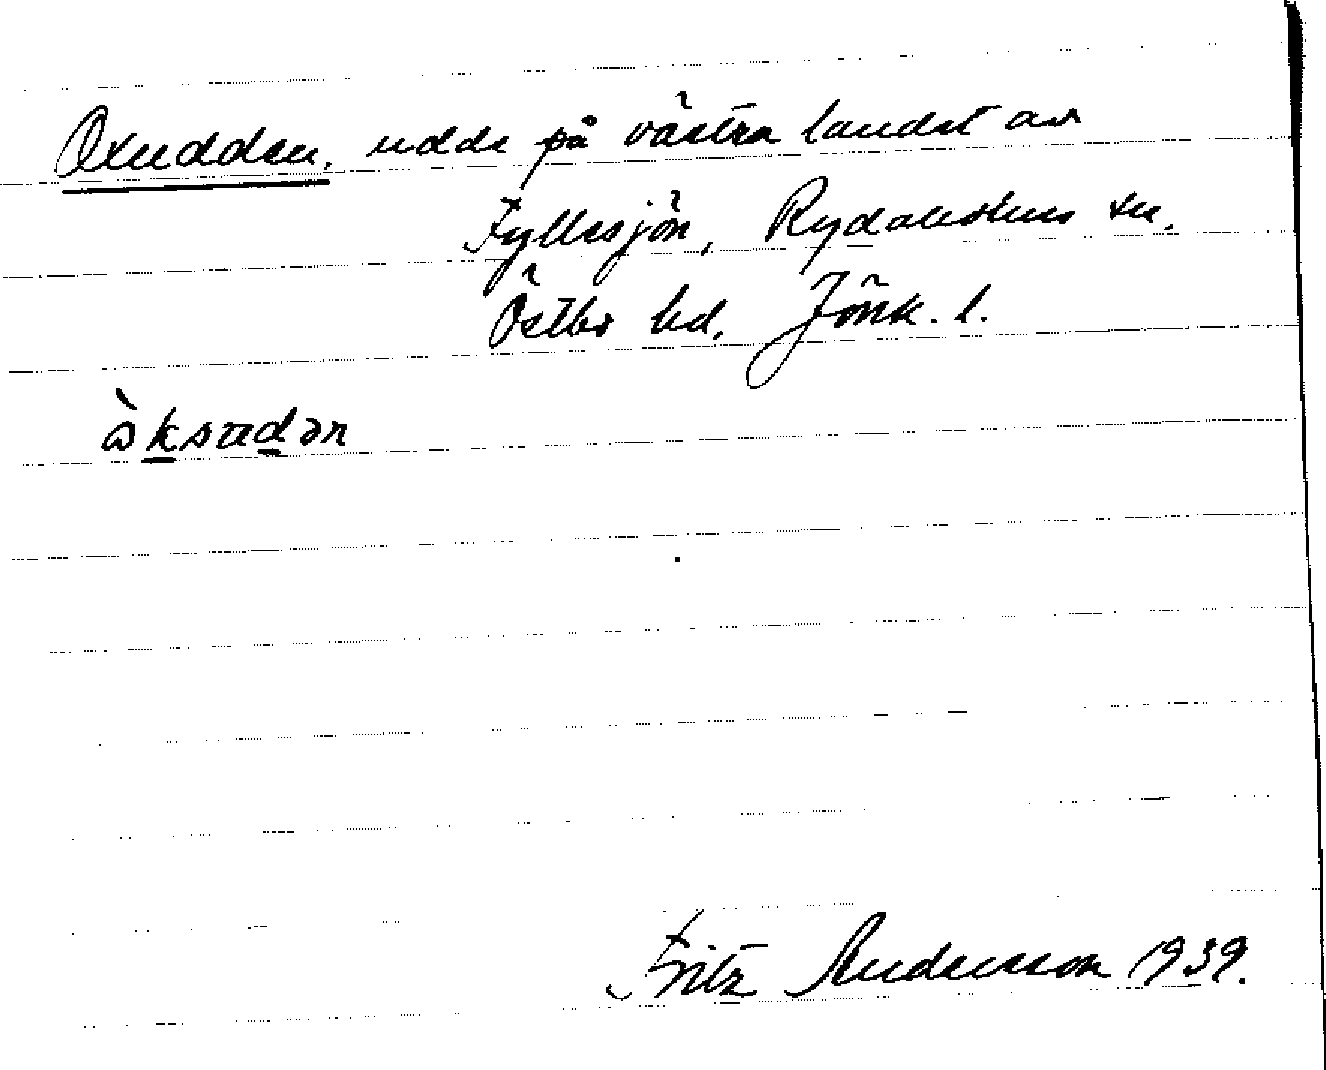 Oxudden, udde på västra landet av
Fyllesjön, Rydaholms sn,
Östbo hd, Jönk. l.
òksudən
Fritz Andersson 1939.